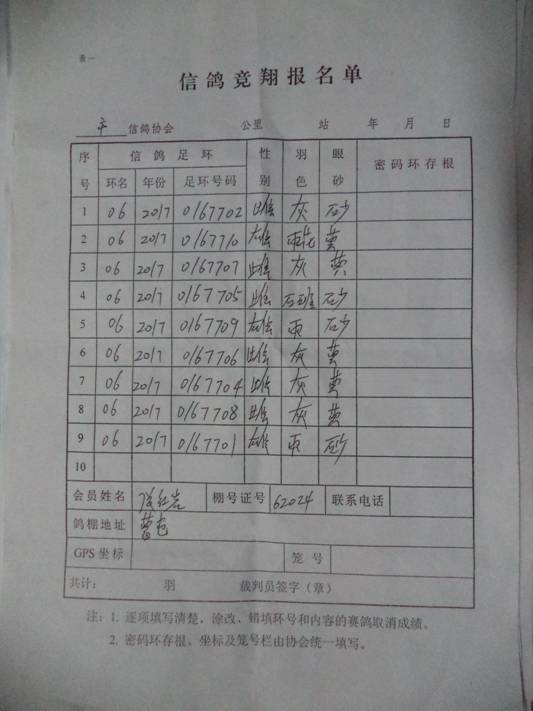 表一
信鸽竞翔报名单
信鸽协会 公里 站 年 月 日
序号 信鸽足环 性别 羽色 眼砂 密码环存根
环名 年份 足环号码
1 06 2017 0167702 雌 灰 砂
2 06 2017 0167710 雄 雨花 黄
3 06 2017 0167707 雌 灰 黄
4 06 2017 0167705 雌 石班 砂
5 06 2017 0167709 雄 雨 砂
6 06 2017 0167706 雌 灰 黄
7 06 2017 0167704 雌 灰 黄
8 06 2017 0167708 雌 灰 黄
9 06 2017 0167701 雄 雨 砂
10
会员姓名 棚号证号 62024 联系电话
鸽棚地址
GPS坐标 笼号
共计: 羽 裁判员签字(章)
注:1. 逐项填写清楚,涂改、错填环号和内容的赛鸽取消成绩。
2. 密码环存根、坐标及笼号栏由协会统一填写。